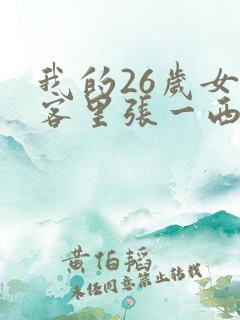 我的26歲女
客里張一西
黄伯韬
未经同意禁止转载